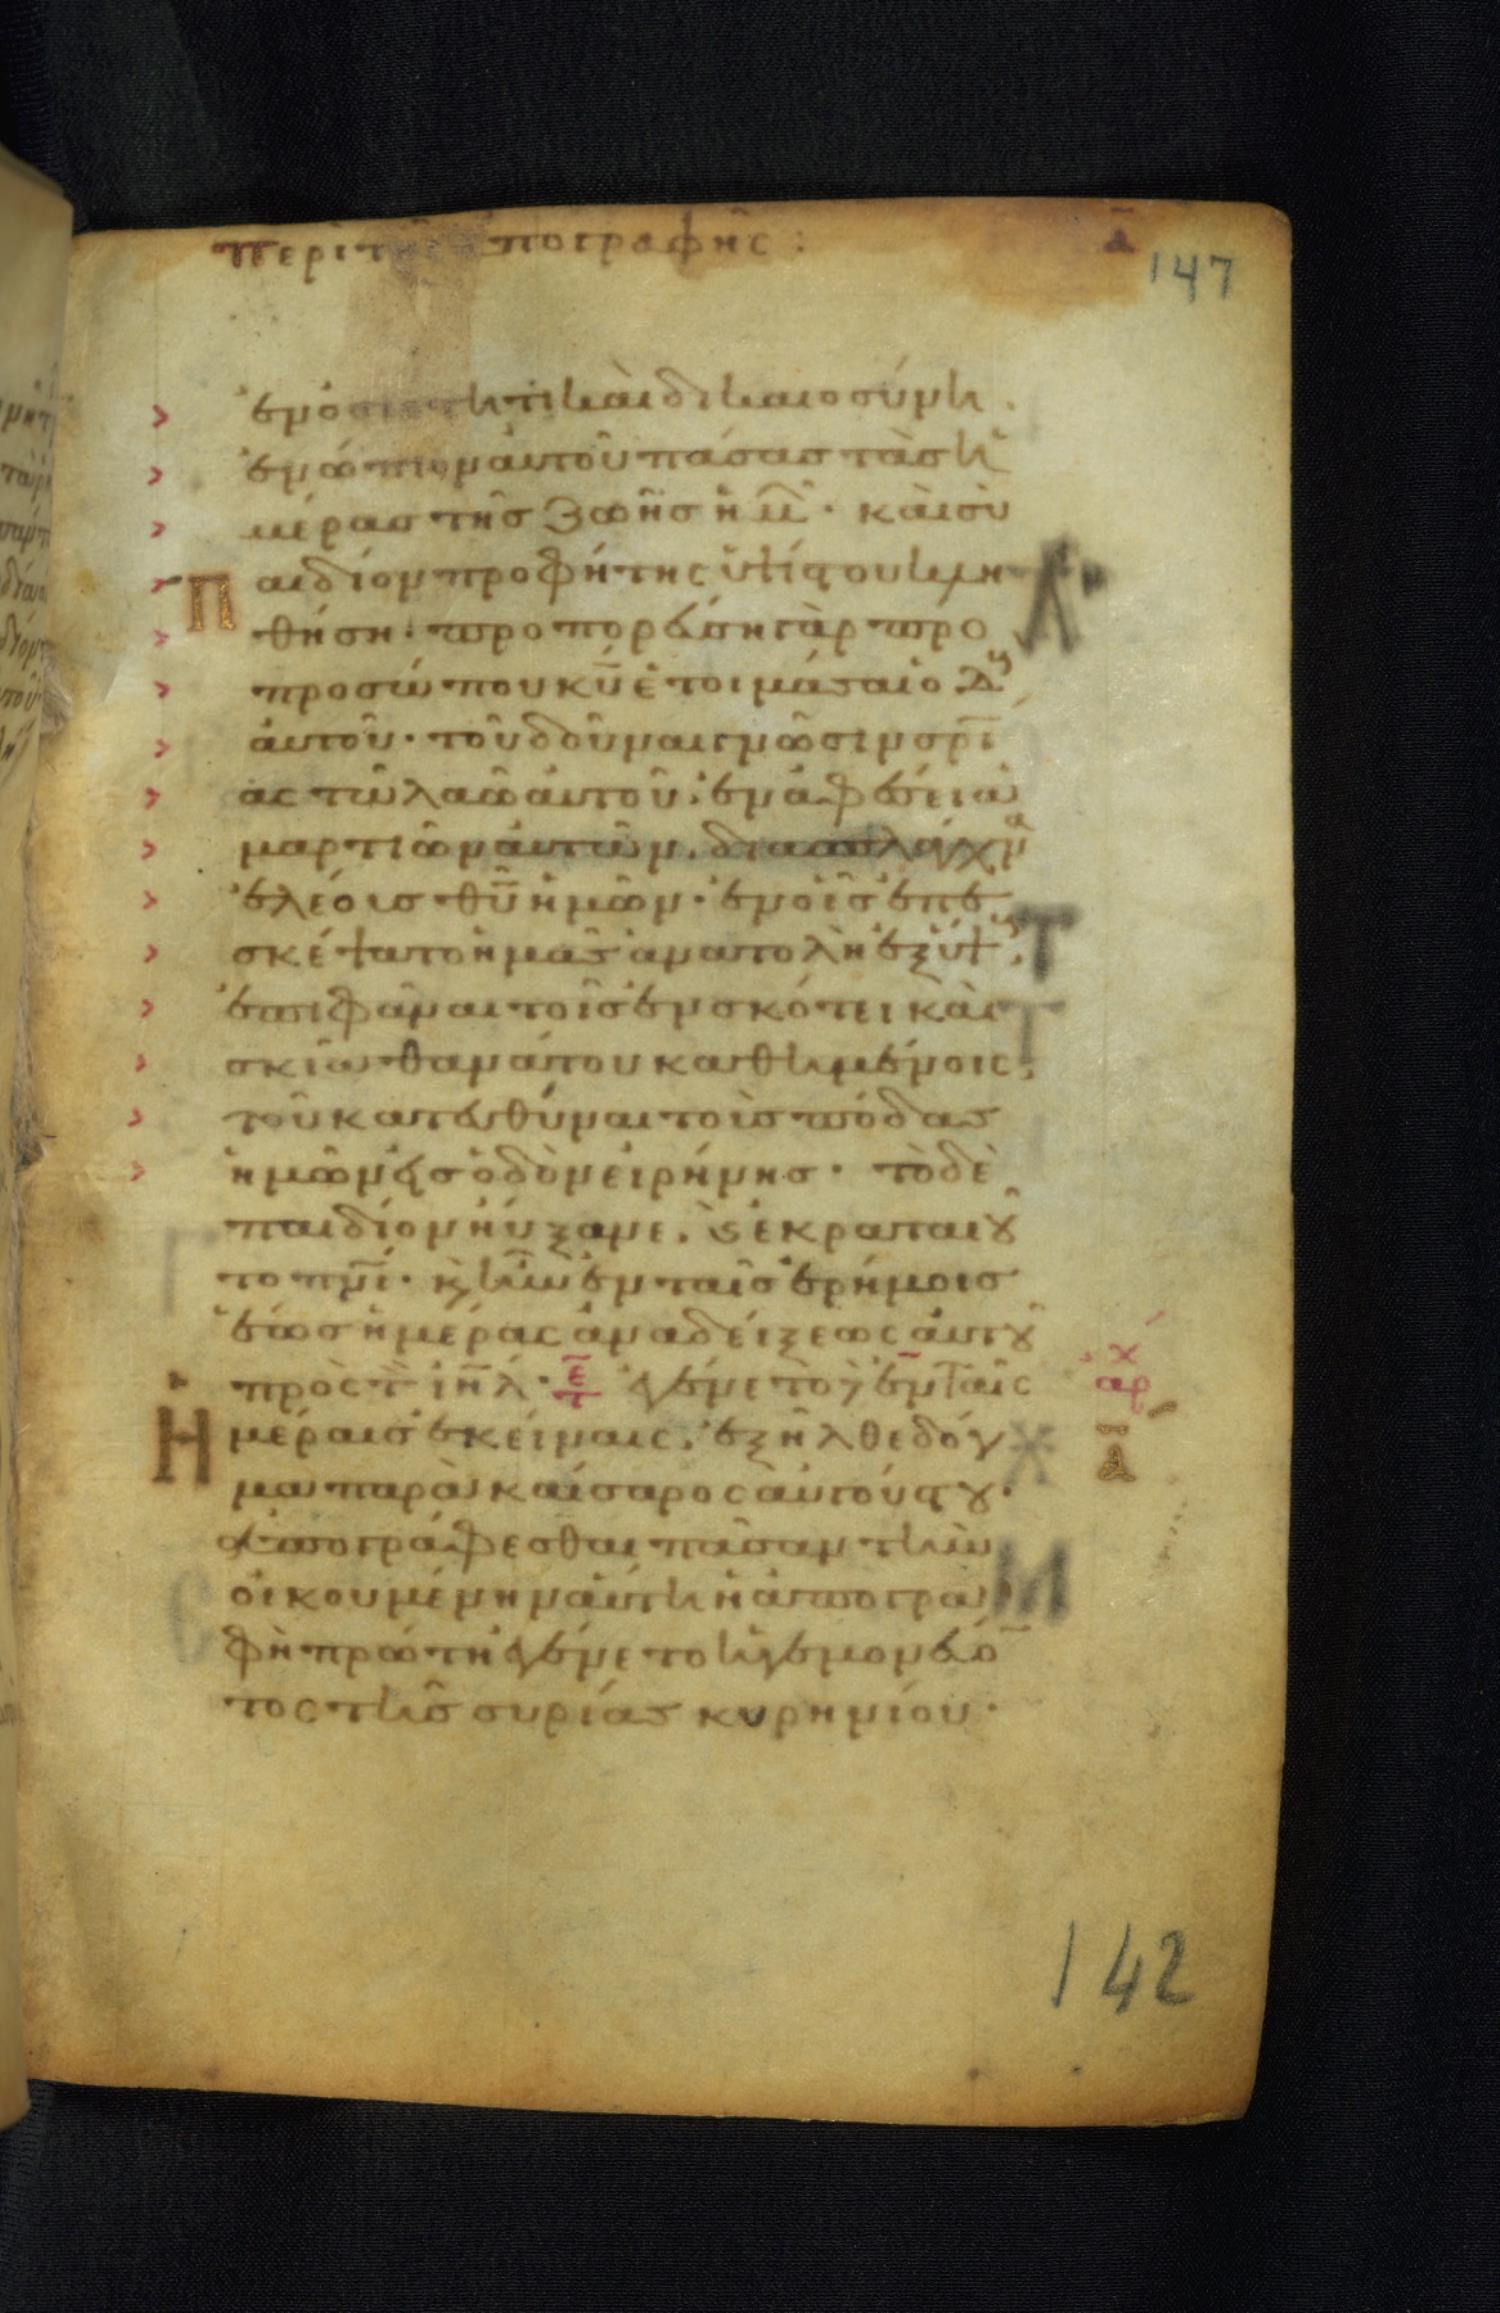 περι της απογραφης :
α
147
ἐν ὁσιότητι καὶ δικαιοσύνη.
ἐνώπιον αυτοῦ πάσας τὰς ἡ
μέρας τῆς ζωῆς ἡμ̅. καὶ σὺ
Παιδίον προφήτης ὑψίστου κλη
θήση. προπορεύση γὰρ πρὸ
προσώπου κ̅υ̅ ἑτοιμάσαι ὁδους
ἀυτοῦ. τοῦ δοῦναι γνῶσιν σρ̅ι
ας τῶ λαῶ ἀυτοῦ. ἐν ἀφέσει ἁ
μαρτιῶν ἀυτῶν. δια σπλάγχνα
ἐλέους θ̅υ̅ ἡμῶν. ἐν οἷς ἐπε
σκέψατο ἡμᾶς ἀνατολὴ ἐξ ὑψους.
ἐπιφᾶναι τοῖς ἐν σκότει καὶ
σκιᾶ θανάτου καθημένοις.
τοῦ κατευθύναι τοὺς πόδας
ἡμῶν εἰς ὁδὸν εἰρήνης. τὸ δὲ
παιδίον ηύξανε. ϗ ἐκραταιου
το π̅ν̅ι. ϗ ἦν ἐν ταῖς ἐρήμοις
ἕως ἡμέρας ἀναδείξεως ἀυτου
πρὸς τ ἰη̅λ. ε̅ τ ἐγένετο ἐν ταῖς
Ημέραις ἐκείναις. ἐξῆλθε δόγ
μα παρὰ καίσαρος ἀυγούστου.
ἀπογράφεσθαι πᾶσαν τὴν
οἰκουμένην ἀύτη ἡ ἀπογρα
φὴ πρώτη ἐγένετο ἡγεμονεύο
τος τῆς συρίας κυρηνίου.
χ
αρ
Α
142